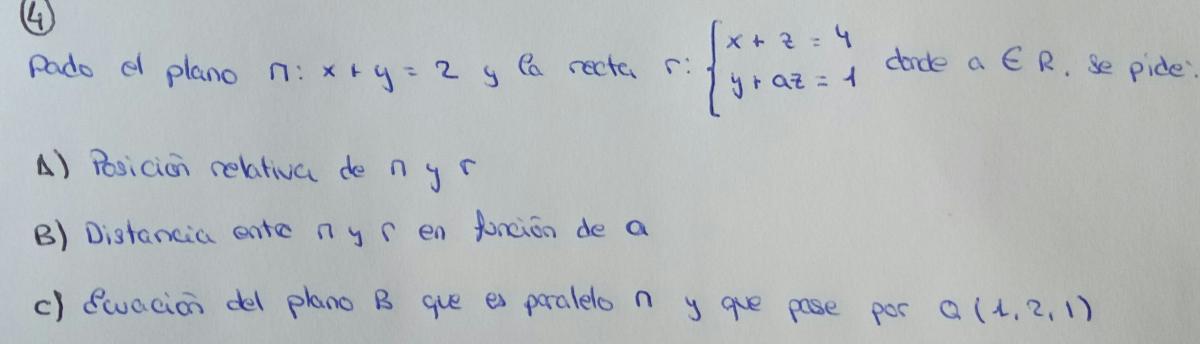 4
Dado el plano π: x + y = 2 y la recta r: { x + z = 4
y + az = 1 donde a ∈ R. Se pide:
A) Posición relativa de π y r
B) Distancia entre π y r en función de a
C) Ecuación del plano B que es paralelo π y que pase por Q (1, 2, 1)